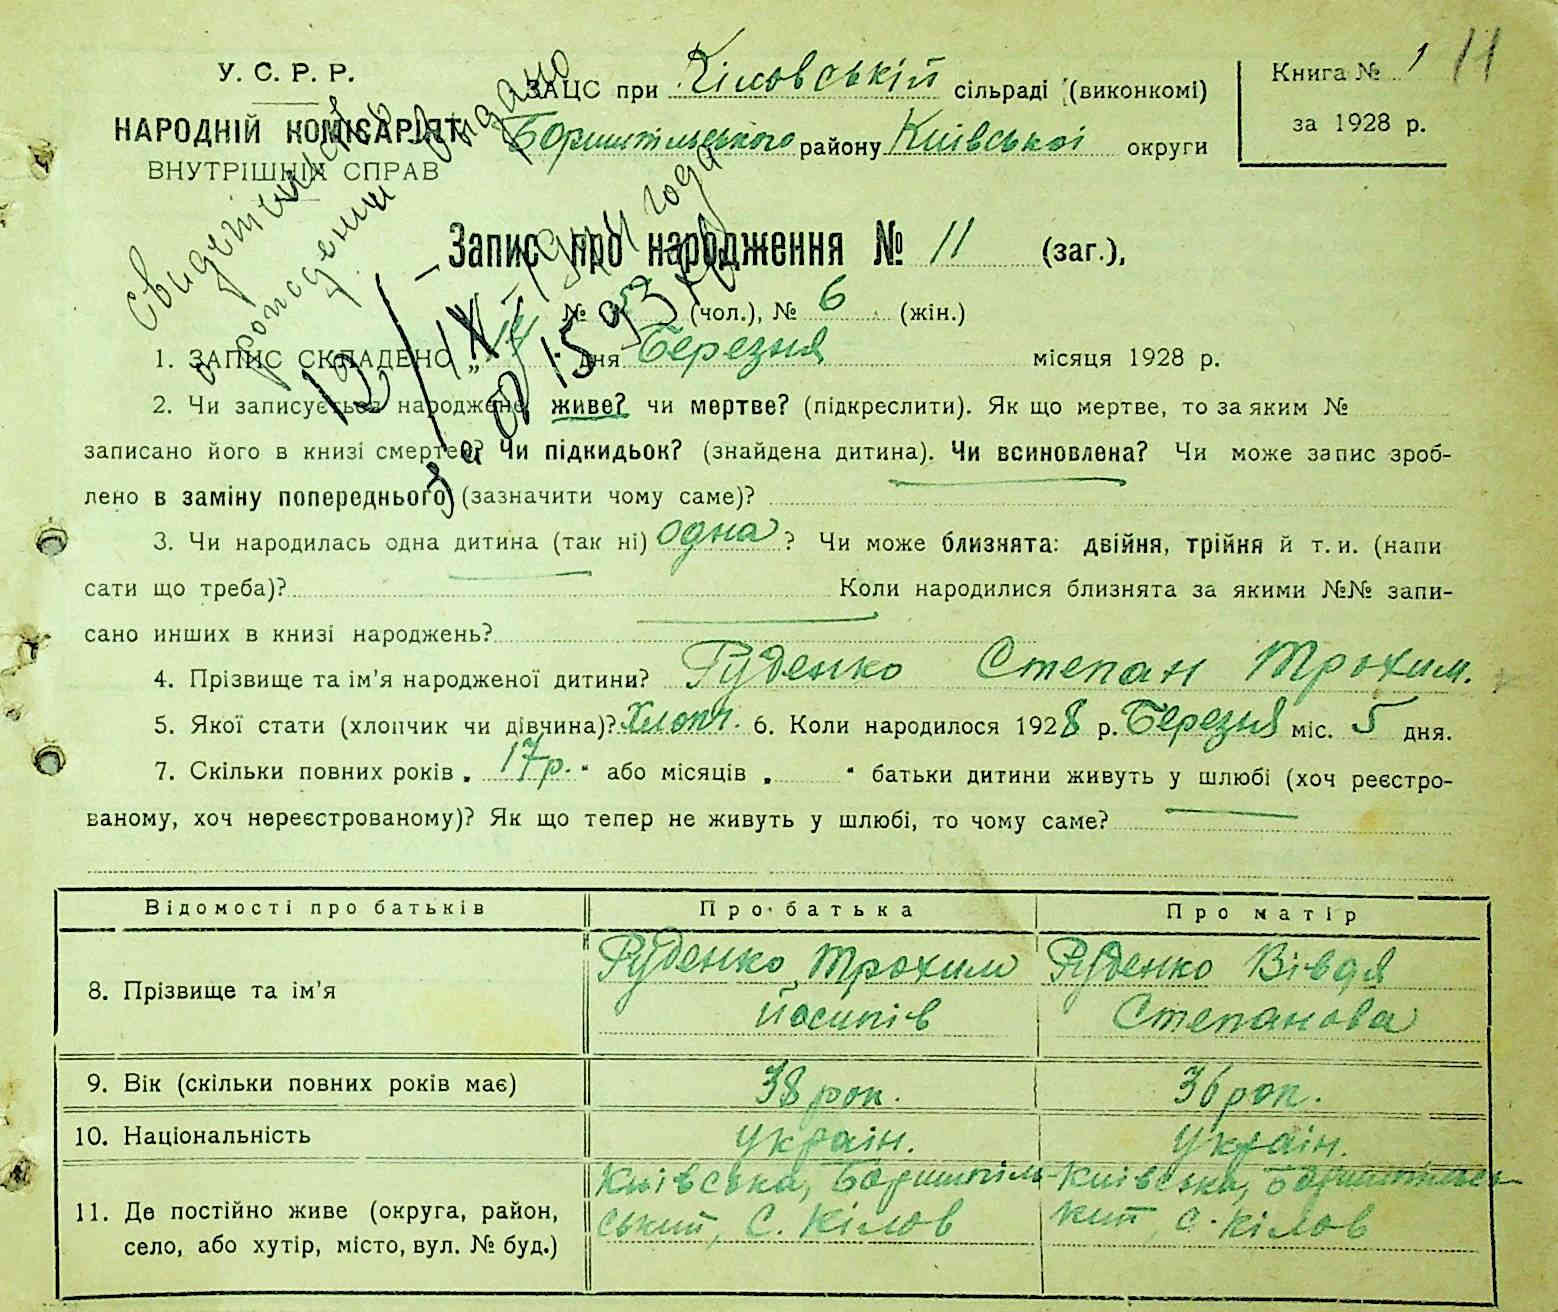 У. С. Р. Р.
НАРОДНІЙ КОМІСАРІЯТ
ВНУТРІШНІХ СПРАВ
ЗАЦС при Кіловській сільраді (виконкомі)
Боришпільського району Київської округи
Книга № 1
за 1928 р.
11
Свидетельство
о рождении выдано
12/IX
года
Запис про народження № 11 (заг.),
№ 5 (чол.), № 6 (жін.)
1. ЗАПИС СКЛАДЕНО „14" дня Березня місяця 1928 р.
2. Чи записується народжене живе? чи мертве? (підкреслити). Як що мертве, то за яким №
записано його в книзі смертей? Чи підкидьок? (знайдена дитина). Чи всиновлена? Чи може запис зроб-
лено в заміну попереднього (зазначити чому саме)?
3. Чи народилась одна дитина (так ні) одна ? Чи може близнята: двійня, трійня й т. и. (напи
сати що треба)? Коли народилися близнята за якими №№ запи-
сано инших в книзі народжень?
4. Прізвище та ім'я народженої дитини? Руденко Степан Трохим.
5. Якої стати (хлопчик чи дівчина)? Хлопч. 6. Коли народилося 1928 р. Березня міс. 5 дня.
7. Скільки повних років „ 17 р. " або місяців „ " батьки дитини живуть у шлюбі (хоч реєстро-
ваному, хоч нереєстрованому)? Як що тепер не живуть у шлюбі, то чому саме?
Відомості про батьків Про батька Про матір
8. Прізвище та ім'я Руденко Трохим Руденко Вівдя
Йосипів Степанова
9. Вік (скільки повних років має) 38 рок. 36 рок.
10. Національність україн. україн.
11. Де постійно живе (округа, район, Київська, Боришпіль- Київська, Боришпільсь-
село, або хутір, місто, вул. № буд.) ський, С. Кілов кий, с. Кілов